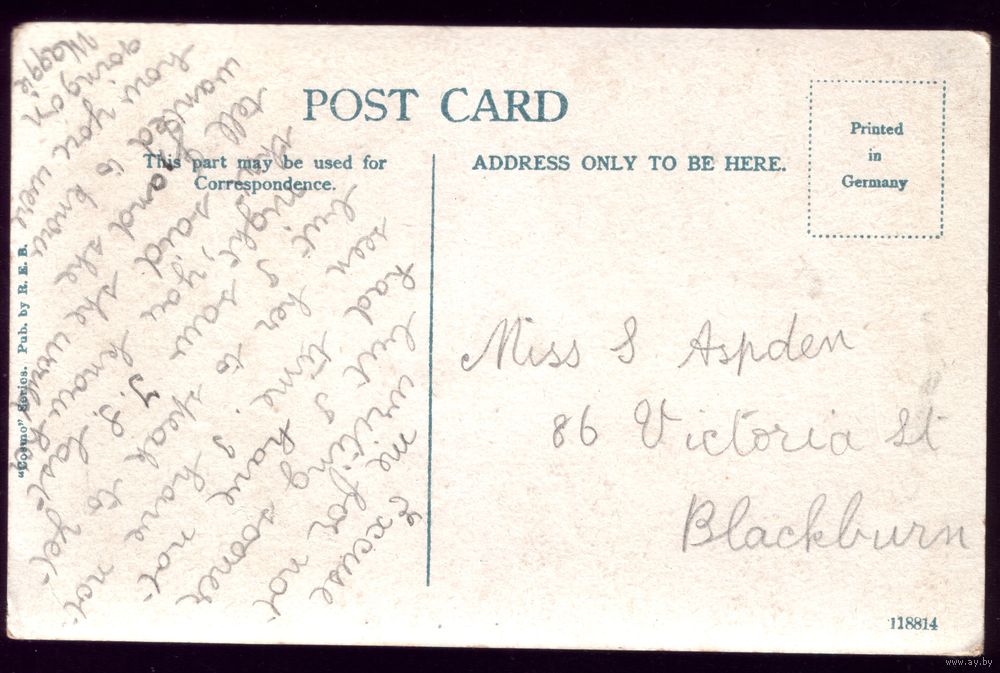 POST CARD
This part may be used for
Correspondence.
ADDRESS ONLY TO BE HERE.
Printed
in
Germany
"Cosmo" Series. Pub. by R. E. B.
Excuse
me for not
writing sooner
but I have not
had time. I have not
seen her to speak to
but I
night, you know
said
and she
wanted to know
how you were
going on
Maggie
Miss S Aspden
86 Victoria St
Blackburn
118814
www.ay.by